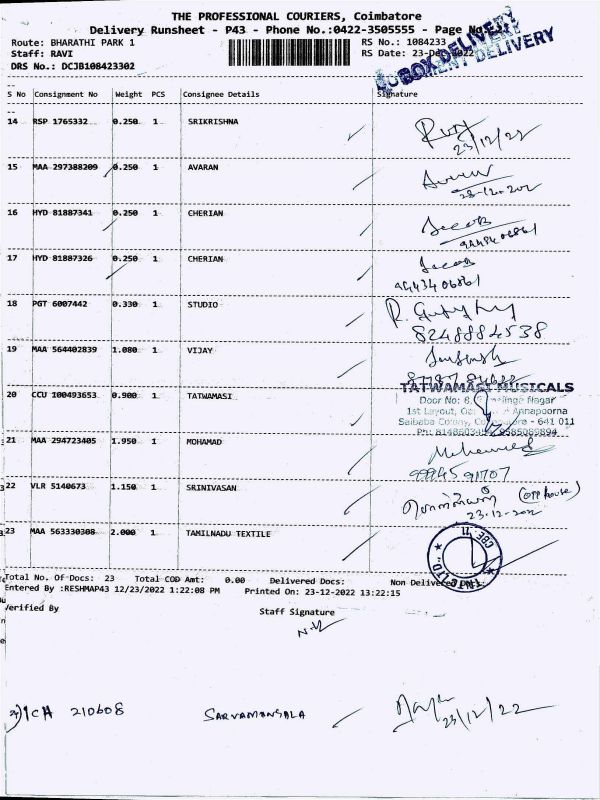 THE PROFESSIONAL COURIERS, Coimbatore
Delivery Runsheet - P43 - Phone No.:0422-3505555 - Page No.
Route: BHARATHI PARK 1 RS No.: 1084233
Staff: RAVI RS Date: 23-Dec-2022
DRS No.: DCJB108423302
BOX DELIVERY
DELIVERY
S No Consignment No Weight PCS Consignee Details Signature
14 RSP 1765332 0.250 1 SRIKRISHNA
23/12/22
15 MAA 297388209 0.250 1 AVARAN
16 HYD 81887341 0.250 1 CHERIAN Jacob
9443406861
17 HYD 81887326 0.250 1 CHERIAN Jacob
9443406861
18 PGT 6007442 0.330 1 STUDIO
8248884538
19 MAA 564402839 1.080 1 VIJAY
20 CCU 100493653 0.900 1 TATWAMASI
TATWAMASI MUSICALS
Door No: Nagar
1st Layout, Annapoorna
Saibaba Colony, - 641 011
21 MAA 294723405 1.950 1 MOHAMAD Mohamed
9994591707
22 VLR 5140673 1.150 1 SRINIVASAN (opp house)
23-12-202
23 MAA 563330308 2.000 1 TAMILNADU TEXTILE
CBE. 11
Total No. Of Docs: 23 Total COD Amt: 0.00 Delivered Docs: Non Delivered
Entered By :RESHMAP43 12/23/2022 1:22:08 PM Printed On: 23-12-2022 13:22:15
Verified By Staff Signature
ICH 210608 SARVAMANGALA
23/12/22